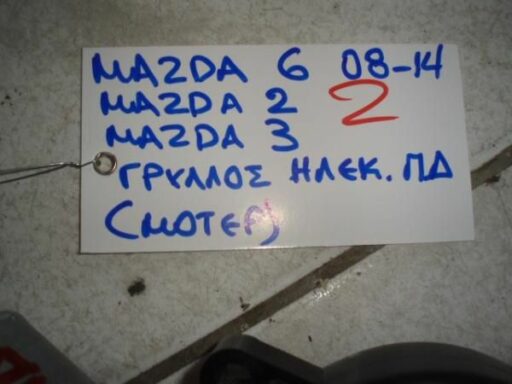 MAZDA 6 08-14
MAZDA 2 2
MAZDA 3
ΓΡΥΛΛΟΣ ΗΛΕΚ. ΠΔ
(ΜΟΤΕΡ)